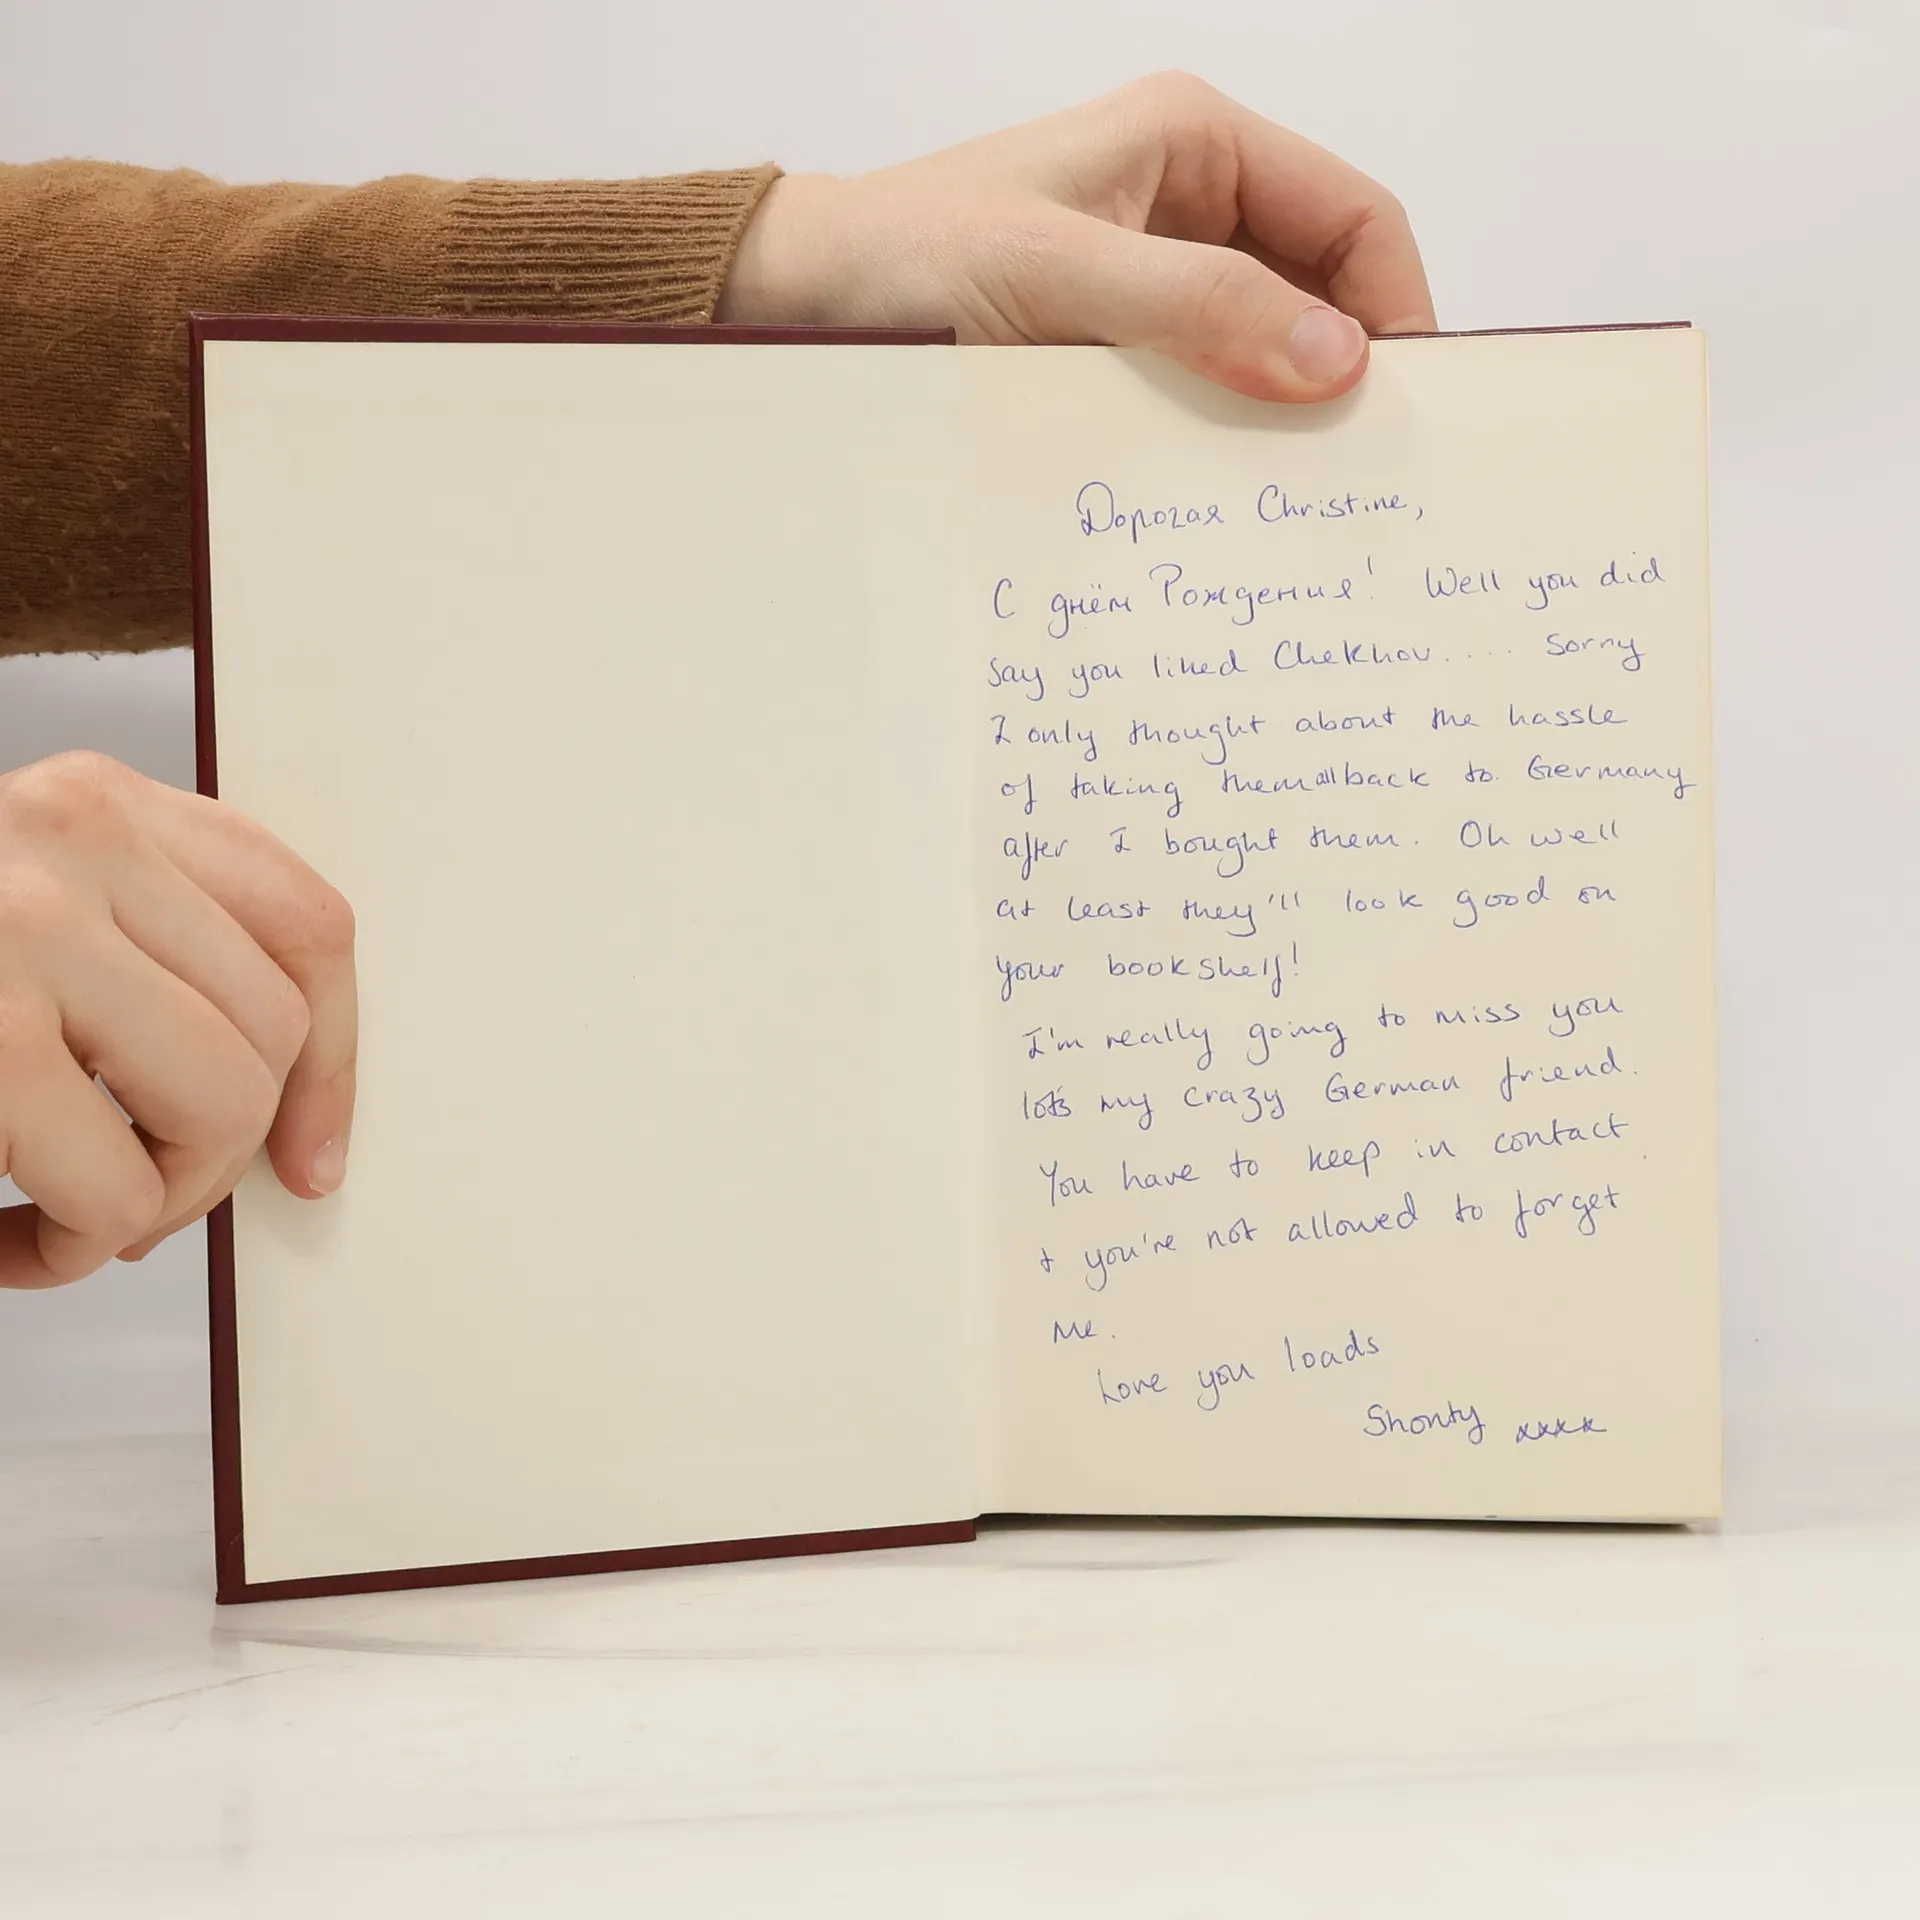 Дорогая Christine,
С днём Рождения! Well you did
say you liked Chekhov.... Sorry
I only thought about the hassle
of taking them all back to Germany
after I bought them. Oh well
at least they'll look good on
your bookshelf!
I'm really going to miss you
lots my crazy German friend.
You have to keep in contact
+ you're not allowed to forget
me.
Love you loads
Shonty xxxx